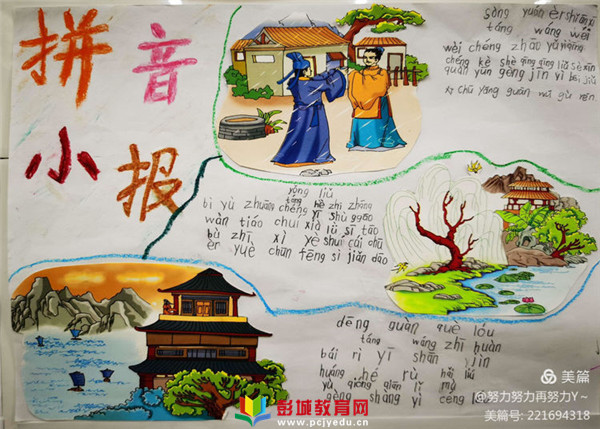 拼音
小报
sòng yuán èr shǐ ān xī
táng wáng wéi
wèi chéng zhāo yǔ yì qīng
chéng kè shè qīng qīng liǔ sè xīn
quàn jūn gèng jìn yì bēi jiǔ
xī chū yáng guān wú gù rén
yǒng liǔ
táng hè zhī zhāng
bì yù zhuāng chéng yī shù gāo
wàn tiáo chuí xià lǜ sī tāo
bù zhī xì yè shuí cái chū
èr yuè chūn fēng sì jiǎn dāo
dēng guàn què lóu
táng wáng zhī huàn
bái rì yī shān jìn
huáng hé rù hǎi liú
yù qióng qiān lǐ mù
gèng shàng yī céng lóu
彭城教育网
www.pcjyedu.cn
美篇
@努力努力再努力Y~
美篇号: 221694318